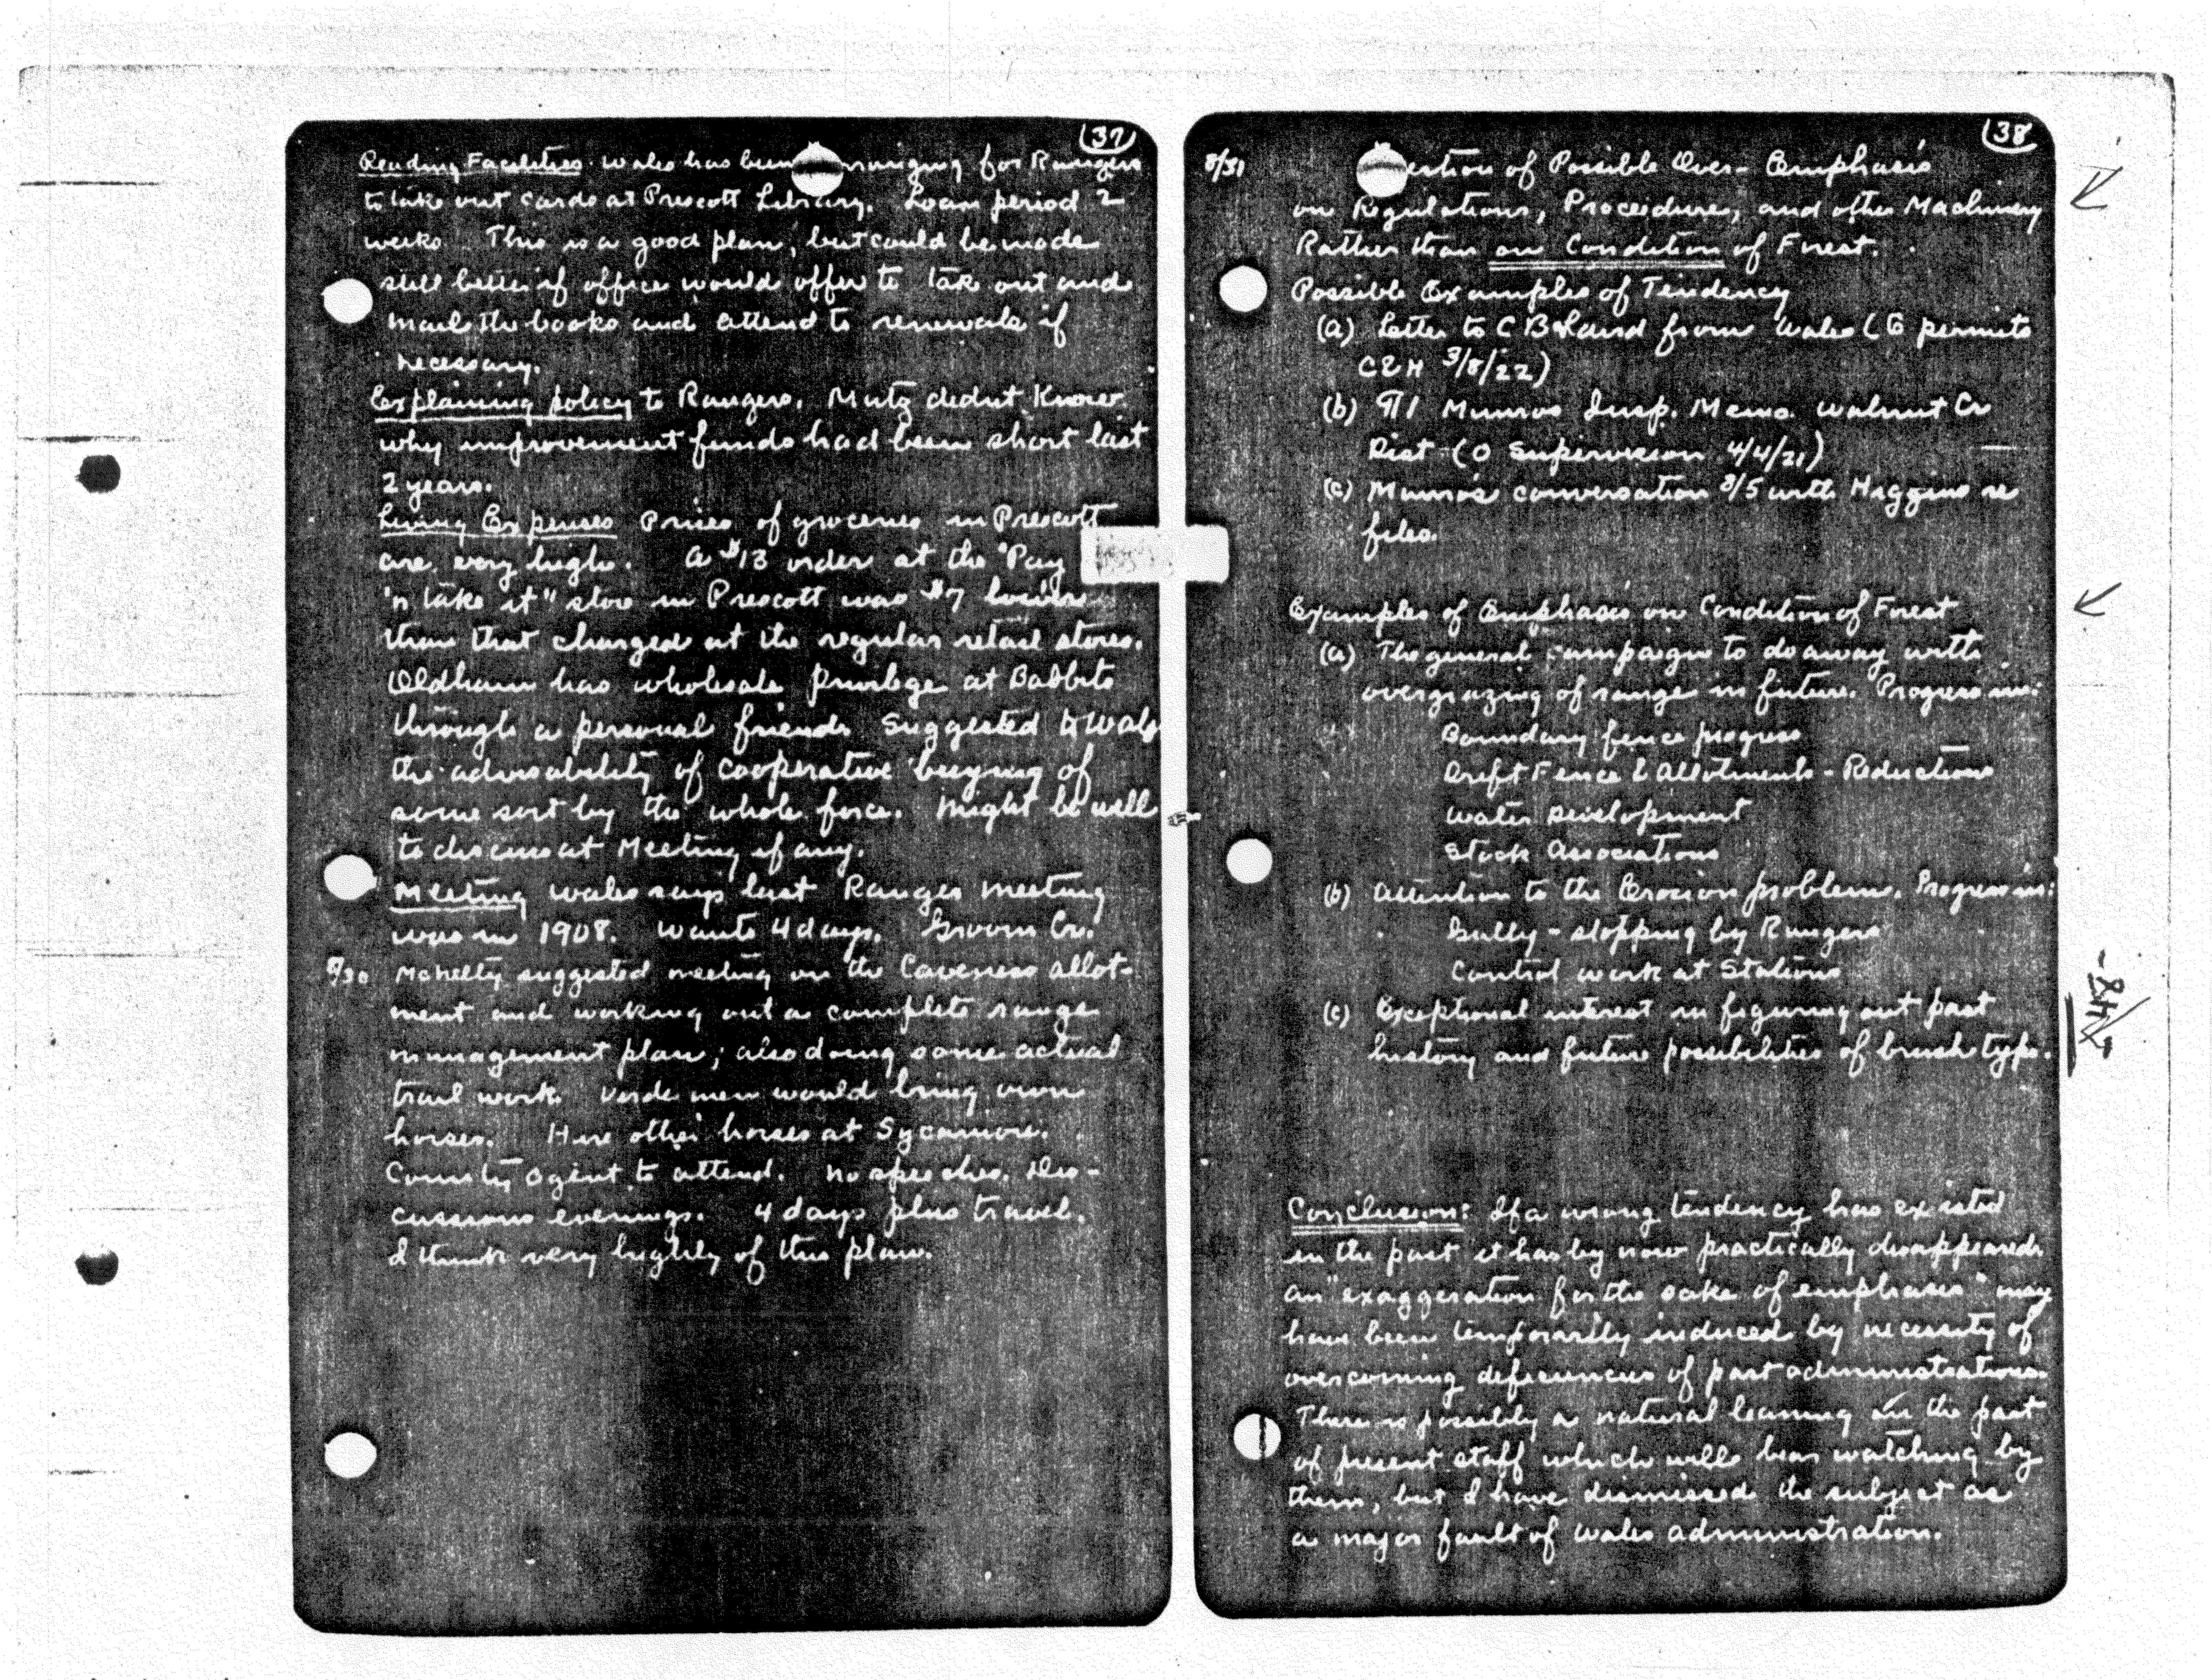 (37)
Reading Facilities. Wales has been arranging for Rangers
to take out cards at Prescott Library. Loan period 2
weeks. This is a good plan, but could be made
still better if office would offer to take out and
mail the books and attend to renewals if
necessary.
Explaining policy to Rangers. Mutz didnt know
why improvement funds had been short last
2 years.
Living Expenses Prices of groceries in Prescott
are very high. A $13 order at the "Pay
'n take it" store in Prescott was $7
than that charged at the regular retail stores.
Oldham has wholesale privilege at Babbits
through a personal friend. Suggested to Wales
the advisability of cooperative buying of
some sort by the whole force. Might be well
to discuss at Meeting if any.
Meeting Wales says last Ranger meeting
was in 1908. Wants 4 days. Groom Cr.
8/30 McNelty suggested meeting on the Caveness allot-
ment and working out a complete range
management plan; also doing some actual
trail work. Verde men would bring own
horses. Hire other horses at Sycamore.
County agent to attend. No speeches. Dis-
cussions evenings. 4 days plus travel.
I think very highly of this plan.
(38)
8/31 estion of Possible Over-Emphasis
on Regulations, Proceedure, and other Machinery
Rather than on Condition of Forest.
Possible Examples of Tendency
(a) Letter to C B Laird from Wales (G permits
C&H 3/8/22)
(b) ¶1 Munros Insp. Memo. Walnut Cr
Dist (O Supervision 4/4/21)
(c) Munro's conversation 8/5 with Higgins re
files.
Examples of Emphasis on Condition of Forest
(a) The general campaign to do away with
overgrazing of range in future. Progress in:
Boundary fence progress
Drift Fence & Allotments - Reductions
Water Development
Stock Associations
(b) Attention to the Erosion problem. Progress in:
Gully-stopping by Rangers
Control work at Stations
(c) Exceptional interest in figuring out past
history and future possibilities of brush type.
Conclusion: If a wrong tendency has existed
in the past it has by now practically disappeared.
An "exaggeration for the sake of emphasis" may
have been temporarily induced by necessity of
overcoming deficiencies of past administrations.
There is possibly a natural leaning on the part
of present staff which will bear watching by
them, but I have dismissed the subject as
a major fault of Wales administration.